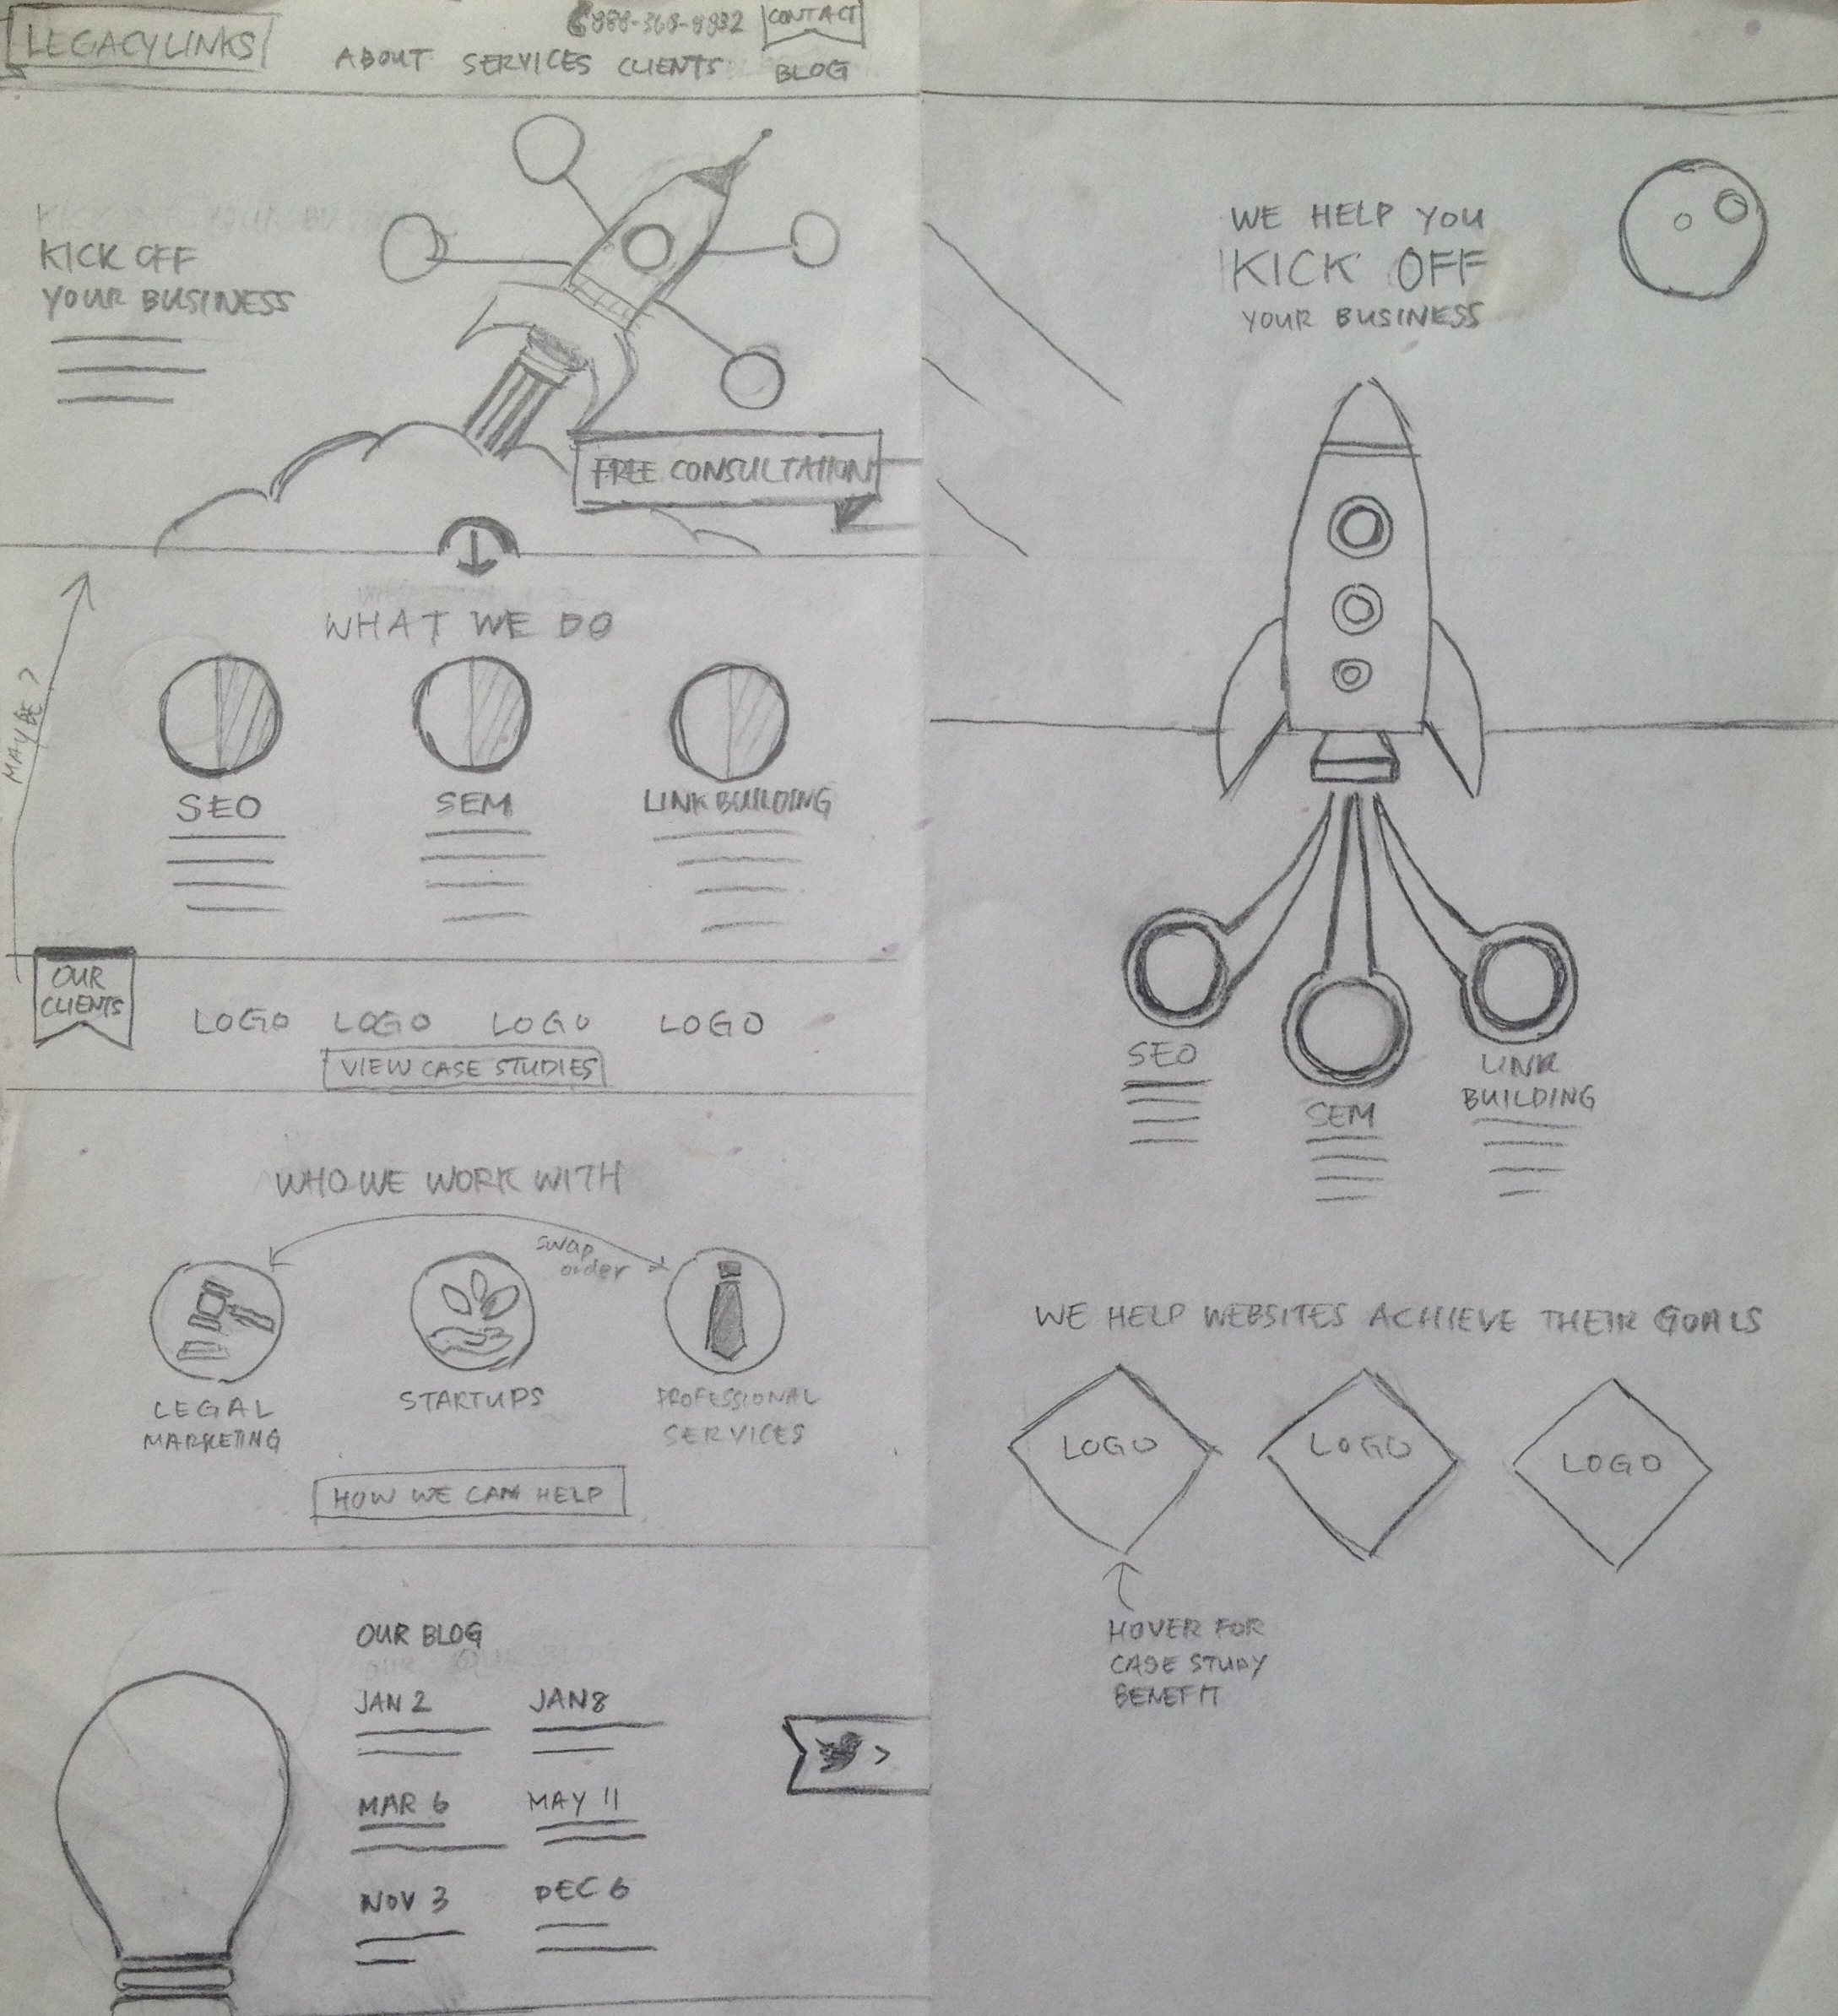 LEGACYLINKS
CONTACT
ABOUT SERVICES CLIENTS BLOG
KICK OFF
YOUR BUSINESS
FREE CONSULTATION
WHAT WE DO
MAYBE?
SEO SEM LINK BUILDING
OUR
CLIENTS
LOGO LOGO LOGO LOGO
VIEW CASE STUDIES
WHO WE WORK WITH
swap
order
LEGAL
MARKETING
STARTUPS
PROFESSIONAL
SERVICES
HOW WE CAN HELP
OUR BLOG
JAN 2 JAN 8
MAR 6 MAY 11
NOV 3 DEC 6
>
WE HELP YOU
KICK OFF
YOUR BUSINESS
SEO
SEM
LINK
BUILDING
WE HELP WEBSITES ACHIEVE THEIR GOALS
LOGO LOGO LOGO
HOVER FOR
CASE STUDY
BENEFIT